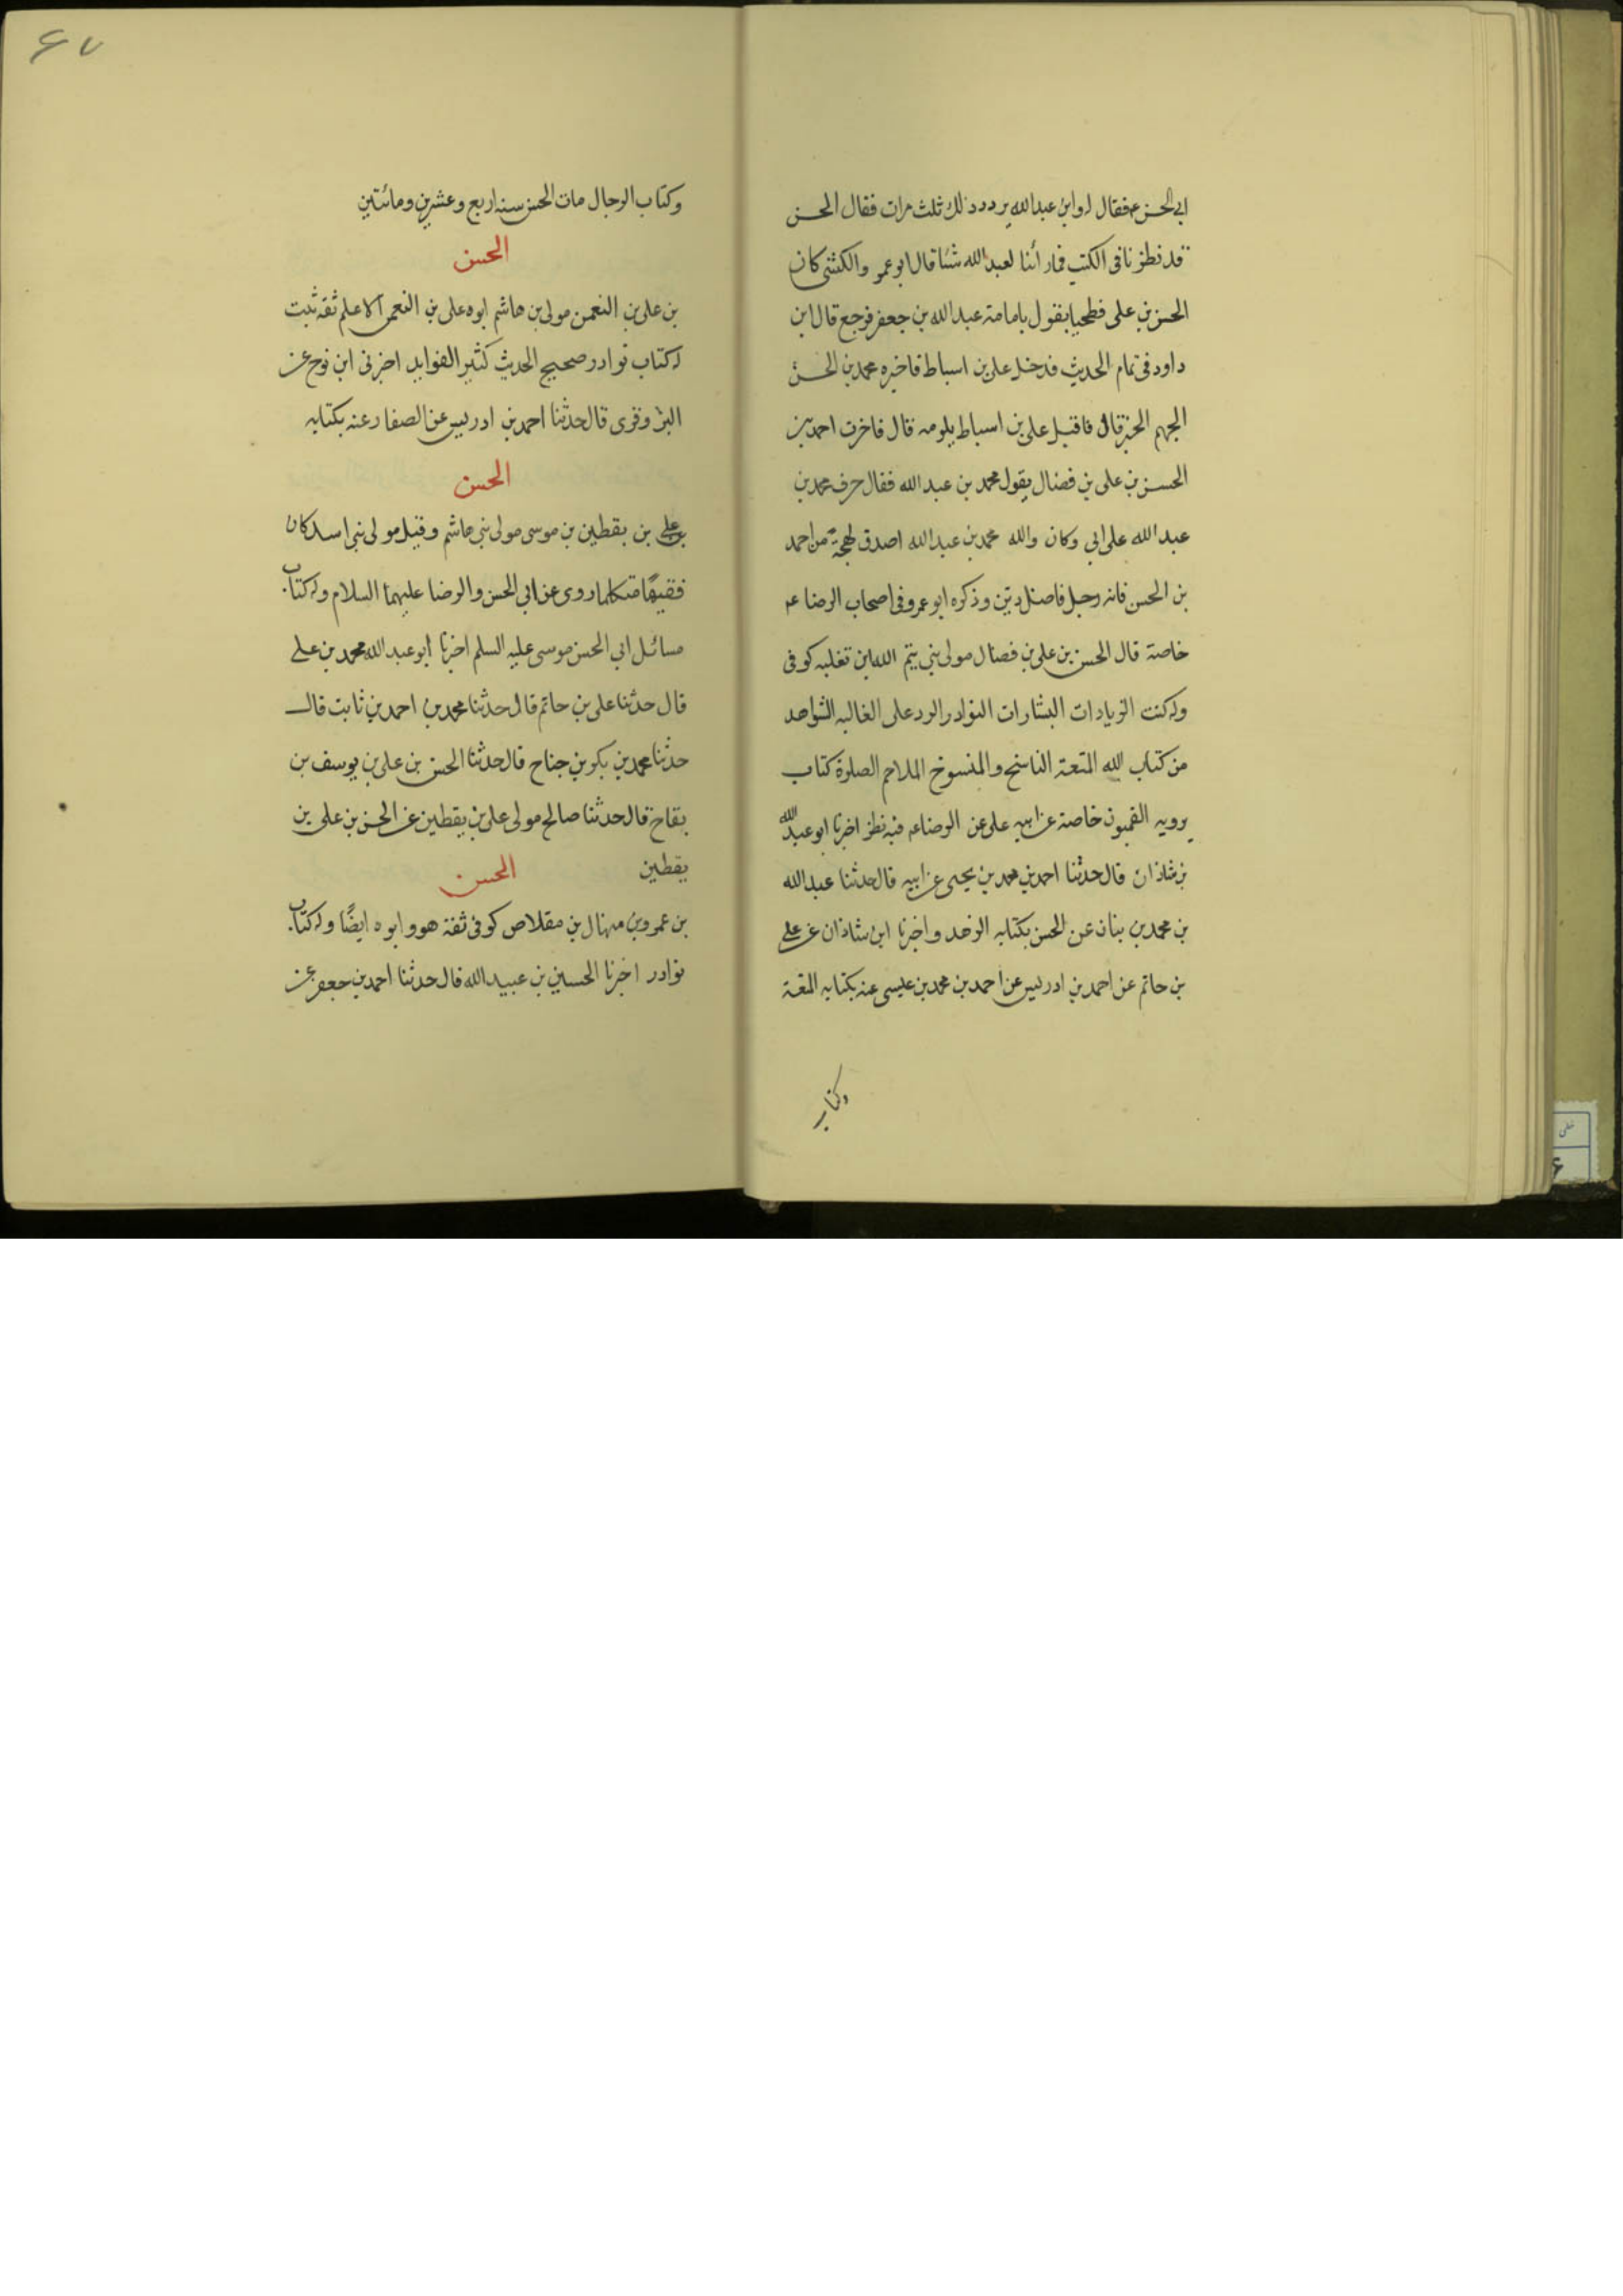 ابي الحسن ع فقال له واين عبدالله يردد ذلك ثلث مرات فقال الحسن
قد نظرنا في الكتب فما رأينا لعبد الله شئا قال ابو عمر والكشي كان
الحسن بن علي فطحيا يقول بامامة عبدالله بن جعفر فرجع قال ابن
داود في تمام الحديث فدخل علي بن اسباط فاخبره محمد بن الحسن
الجهم الخبر قال فاقبل علي بن اسباط يلومه قال فاخبرت احمد بن
الحسن بن علي بن فضال بقول محمد بن عبد الله فقال حرف محمد بن
عبد الله على ابي وكان والله محمد بن عبدالله اصدق لهجة من احمد
بن الحسن فانه رجل فاضل دين وذكره ابو عمرو في اصحاب الرضا عم
خاصة قال الحسن بن علي بن فضال مولى بني تيم الله بن تغلبه كوفي
وله كتب الزيادات البشارات النوادر الرد على الغاليه الشواهد
من كتاب الله المتعة الناسخ والمنسوخ الملاحم الصلوة كتاب
يرويه القميون خاصة عن ابيه علي عن الرضا عم فيه نظر اخبرنا ابو عبد الله
بن شاذان قال حدثنا احمد بن محمد بن يحيى عن ابيه قال حدثنا عبد الله
بن محمد بن بنان عن الحسن بكتابه الزهد واخبرنا ابن شاذان عن علي
بن حاتم عن احمد بن ادريس عن احمد بن محمد بن عيسى عنه بكتابه المتعة
وكتاب
۶۷
وكتاب الرجال مات الحسن سنه اربع وعشرين ومائتين
الحسن
بن علي بن النعمن مولى بن هاشم ابوه علي بن النعمن الاعلم ثقه ثبت
له كتاب نوادر صحيح الحديث كثير الفوايد اخبرني ابن نوح عن
البزوفري قال حدثنا احمد بن ادريس عن الصفار عنه بكتابه
الحسن
بن علي بن يقطين بن موسى مولى بني هاشم وقيل مولى بني اسد كان
فقيهًا متكلما روى عن ابي الحسن والرضا عليهما السلام وله كتاب
مسائل ابي الحسن موسى عليه السلم اخبرنا ابو عبد الله محمد بن علي
قال حدثنا علي بن حاتم قال حدثنا محمد بن احمد بن ثابت قال
حدثنا محمد بن بكر بن جناح قال حدثنا الحسن بن علي بن يوسف بن
بقاح قال حدثنا صالح مولى علي بن يقطين عن الحسن بن علي بن
يقطين الحسن
بن عمرو بن منهال بن مقلاص كوفي ثقة هو وابوه ايضًا وله كتاب
نوادر اخبرنا الحسين بن عبيد الله قال حدثنا احمد بن جعفر عن